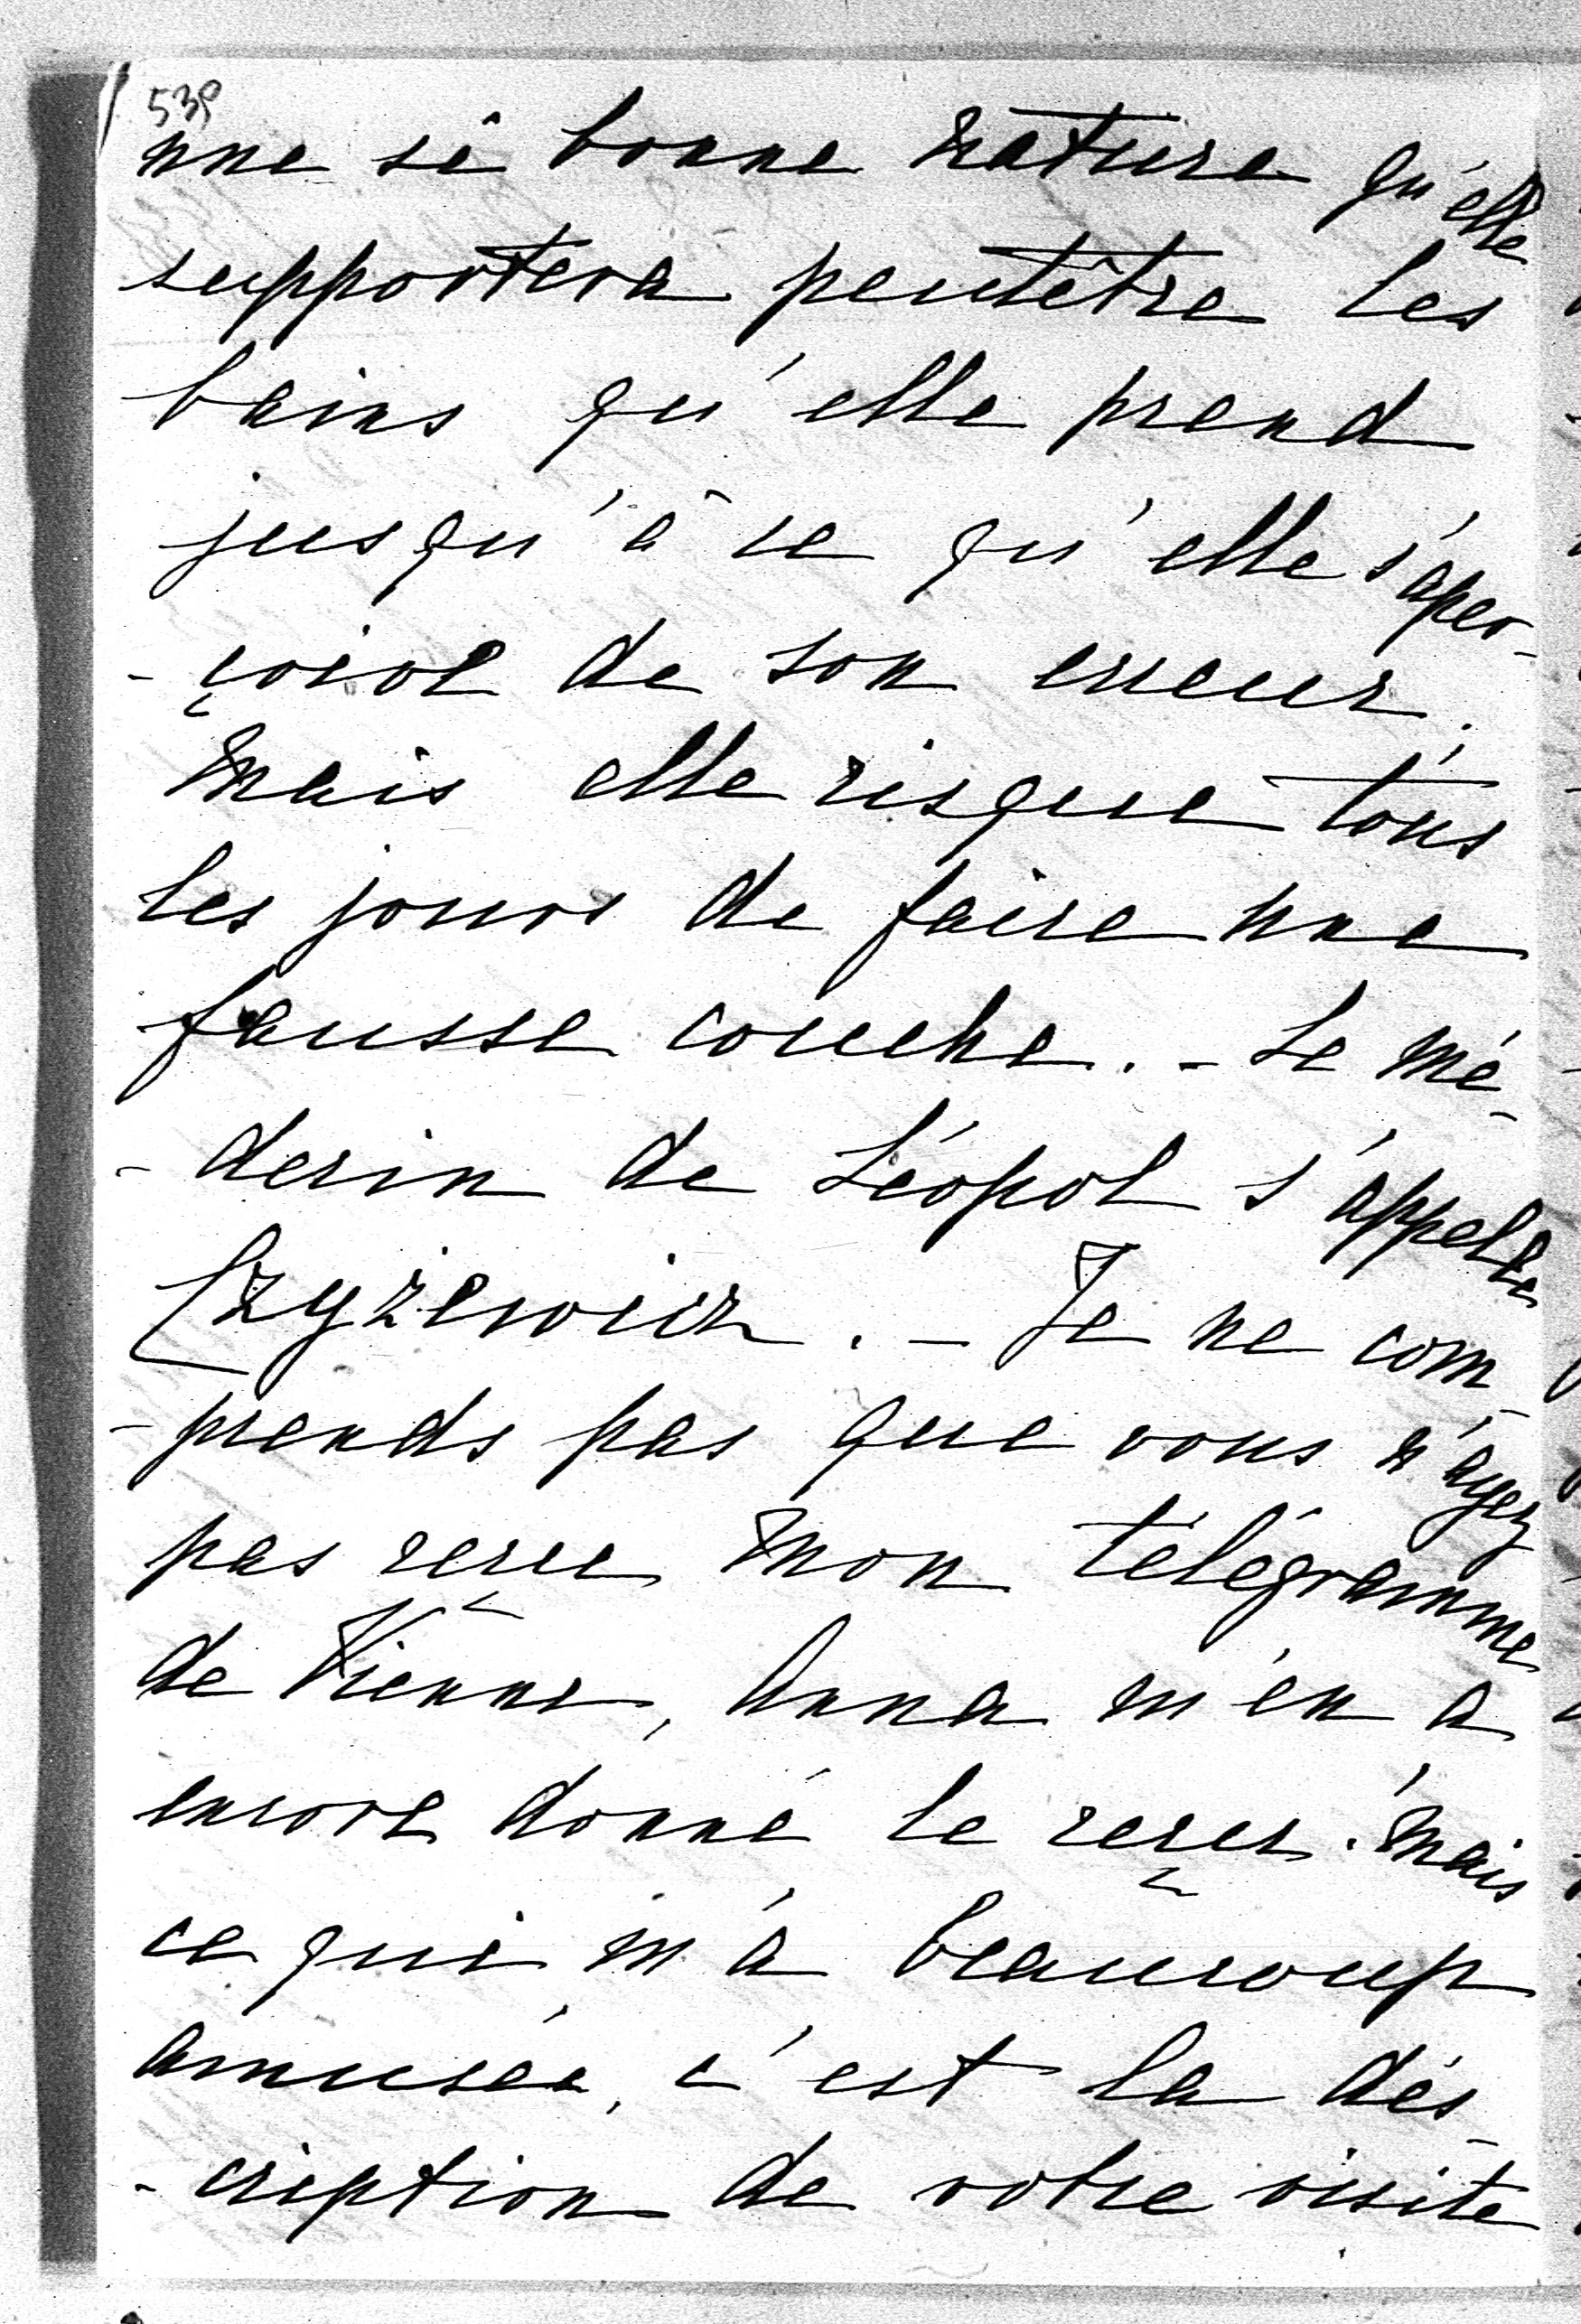 539
une si bonne nature qu'elle
supportera peutêtre les
bains qu'elle prend
jusqu'à ce qu'elle s'aper-
-çoive de son erreur.
Mais elle risque tous
les jours de faire une
fausse couche. - Le mé-
-decin de Léopol s'appelle
Czyżewicz. - Je ne com-
-prends pas que vous n'ayez
pas reçu mon télégramme
de Vienne, Anna m'en a
encore donné le reçu. Mais
ce qui m'a beaucoup
amusée, c'est la des-
-cription de votre visite